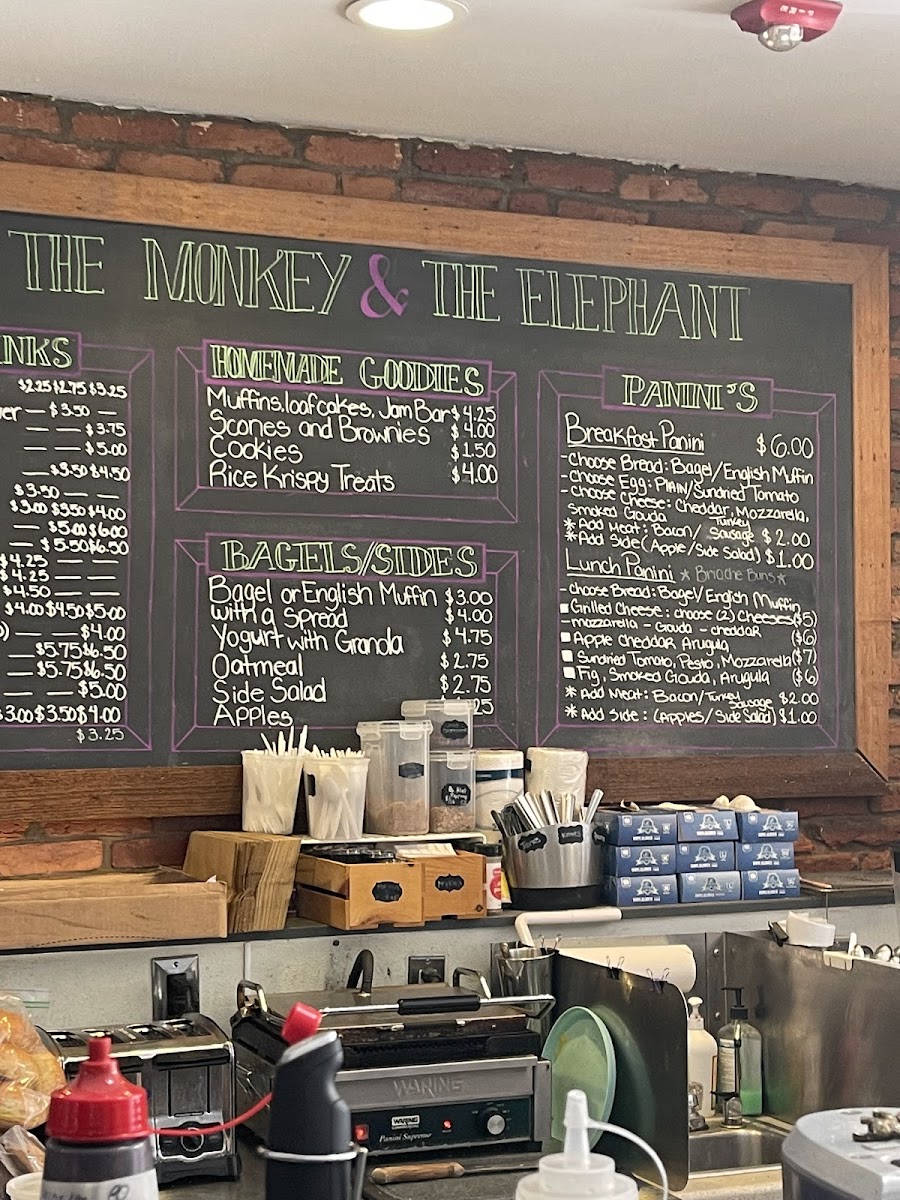 THE MONKEY & THE ELEPHANT
NKS
$2.25 $2.75 $3.25
er — $3.50 —
— — $3.75
— — $5.00
— $3.50 $4.50
$3.50 — —
$3.00 $3.50 $4.00
— $5.00 $6.00
— $5.50 $6.50
$4.25 — —
$4.25 — —
$4.50 — —
$4.00 $4.50 $5.00
) — — $4.00
— $5.75 $6.50
— $5.75 $6.50
— — $5.00
$3.00 $3.50 $4.00
$3.25
HOMEMADE GOODIES
Muffins, loafcakes, Jam Bar $4.25
Scones and Brownies $4.00
Cookies $1.50
Rice Krispy Treats $4.00
BAGELS/SIDES
Bagel or English Muffin $3.00
with a Spread $4.00
Yogurt with Granola $4.75
Oatmeal $2.75
Side Salad $2.75
Apples 25
PANINI'S
Breakfast Panini $6.00
- Choose Bread: Bagel/English Muffin
- Choose Egg: Plain/Sundried Tomato
- Choose Cheese: Cheddar, Mozzarella,
Smoked Gouda
* Add Meat: Bacon/ Turkey Sausage $2.00
* Add Side (Apple/Side Salad) $1.00
Lunch Panini * Brioche Buns *
- Choose Bread: Bagel/English Muffin
Grilled Cheese: choose (2) Cheeses ($5)
- mozzarella - Gouda - cheddar
Apple Cheddar Arugula ($6)
Sundried Tomato, Pesto, Mozzarella ($7)
Fig, Smoked Gouda, Arugula ($6)
* Add Meat: Bacon/Turkey Sausage $2.00
* Add Side: (Apples/Side Salad) $1.00
WARING
WARING
Panini Supremo